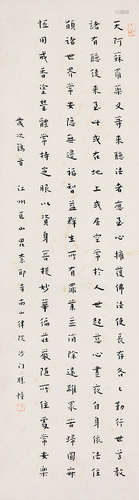 天阿蘇羅藥叉等來聽法者應至心擁護佛法使長存各各勤行世尊教
諸有聽徒來至此或在地上或居空常於人世起慈心晝夜自身依法住
願諸世界常安隱無邊福智益群生所有罪業並消除遠離眾苦歸圓寂
恆用戒香塗瑩體常持定服以資身菩提妙華徧莊嚴隨所住處常安樂
歲次鶉首 江州匡山 寺南山律院沙門勝